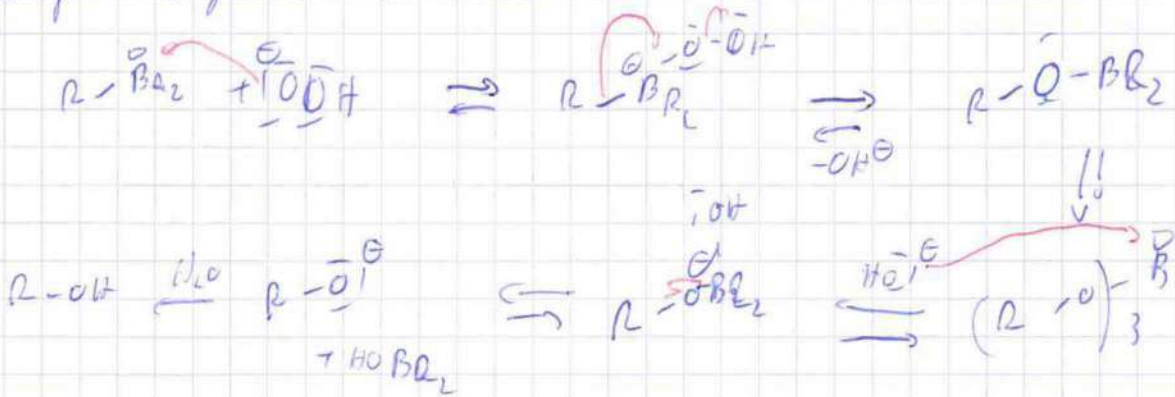 R - BR₂ + |OOH ⊖ ⇌ R - B⊖R₂ - O - OH ⇌ -OH⊖ R - O - BR₂
R-OH H₂O R - O|⊖ + HOBR₂ ⇌ R - O-B⊖R₂ |OH HO|⊖ ⇌ (R - O)₃ - B